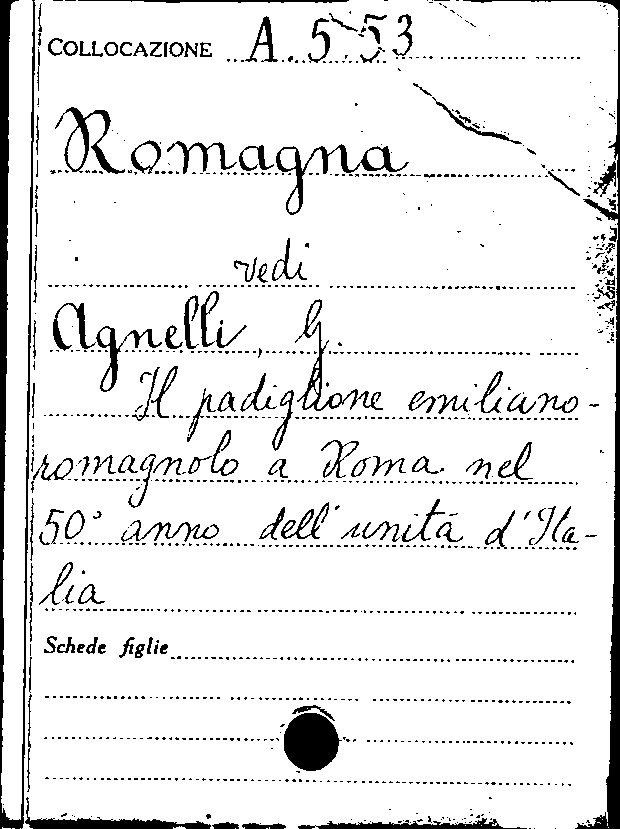 COLLOCAZIONE A.5.53
Romagna
vedi
Agnelli, G.
Il padiglione emiliano-
romagnolo a Roma nel
50° anno dell'unità d'Ita-
lia
Schede figlie